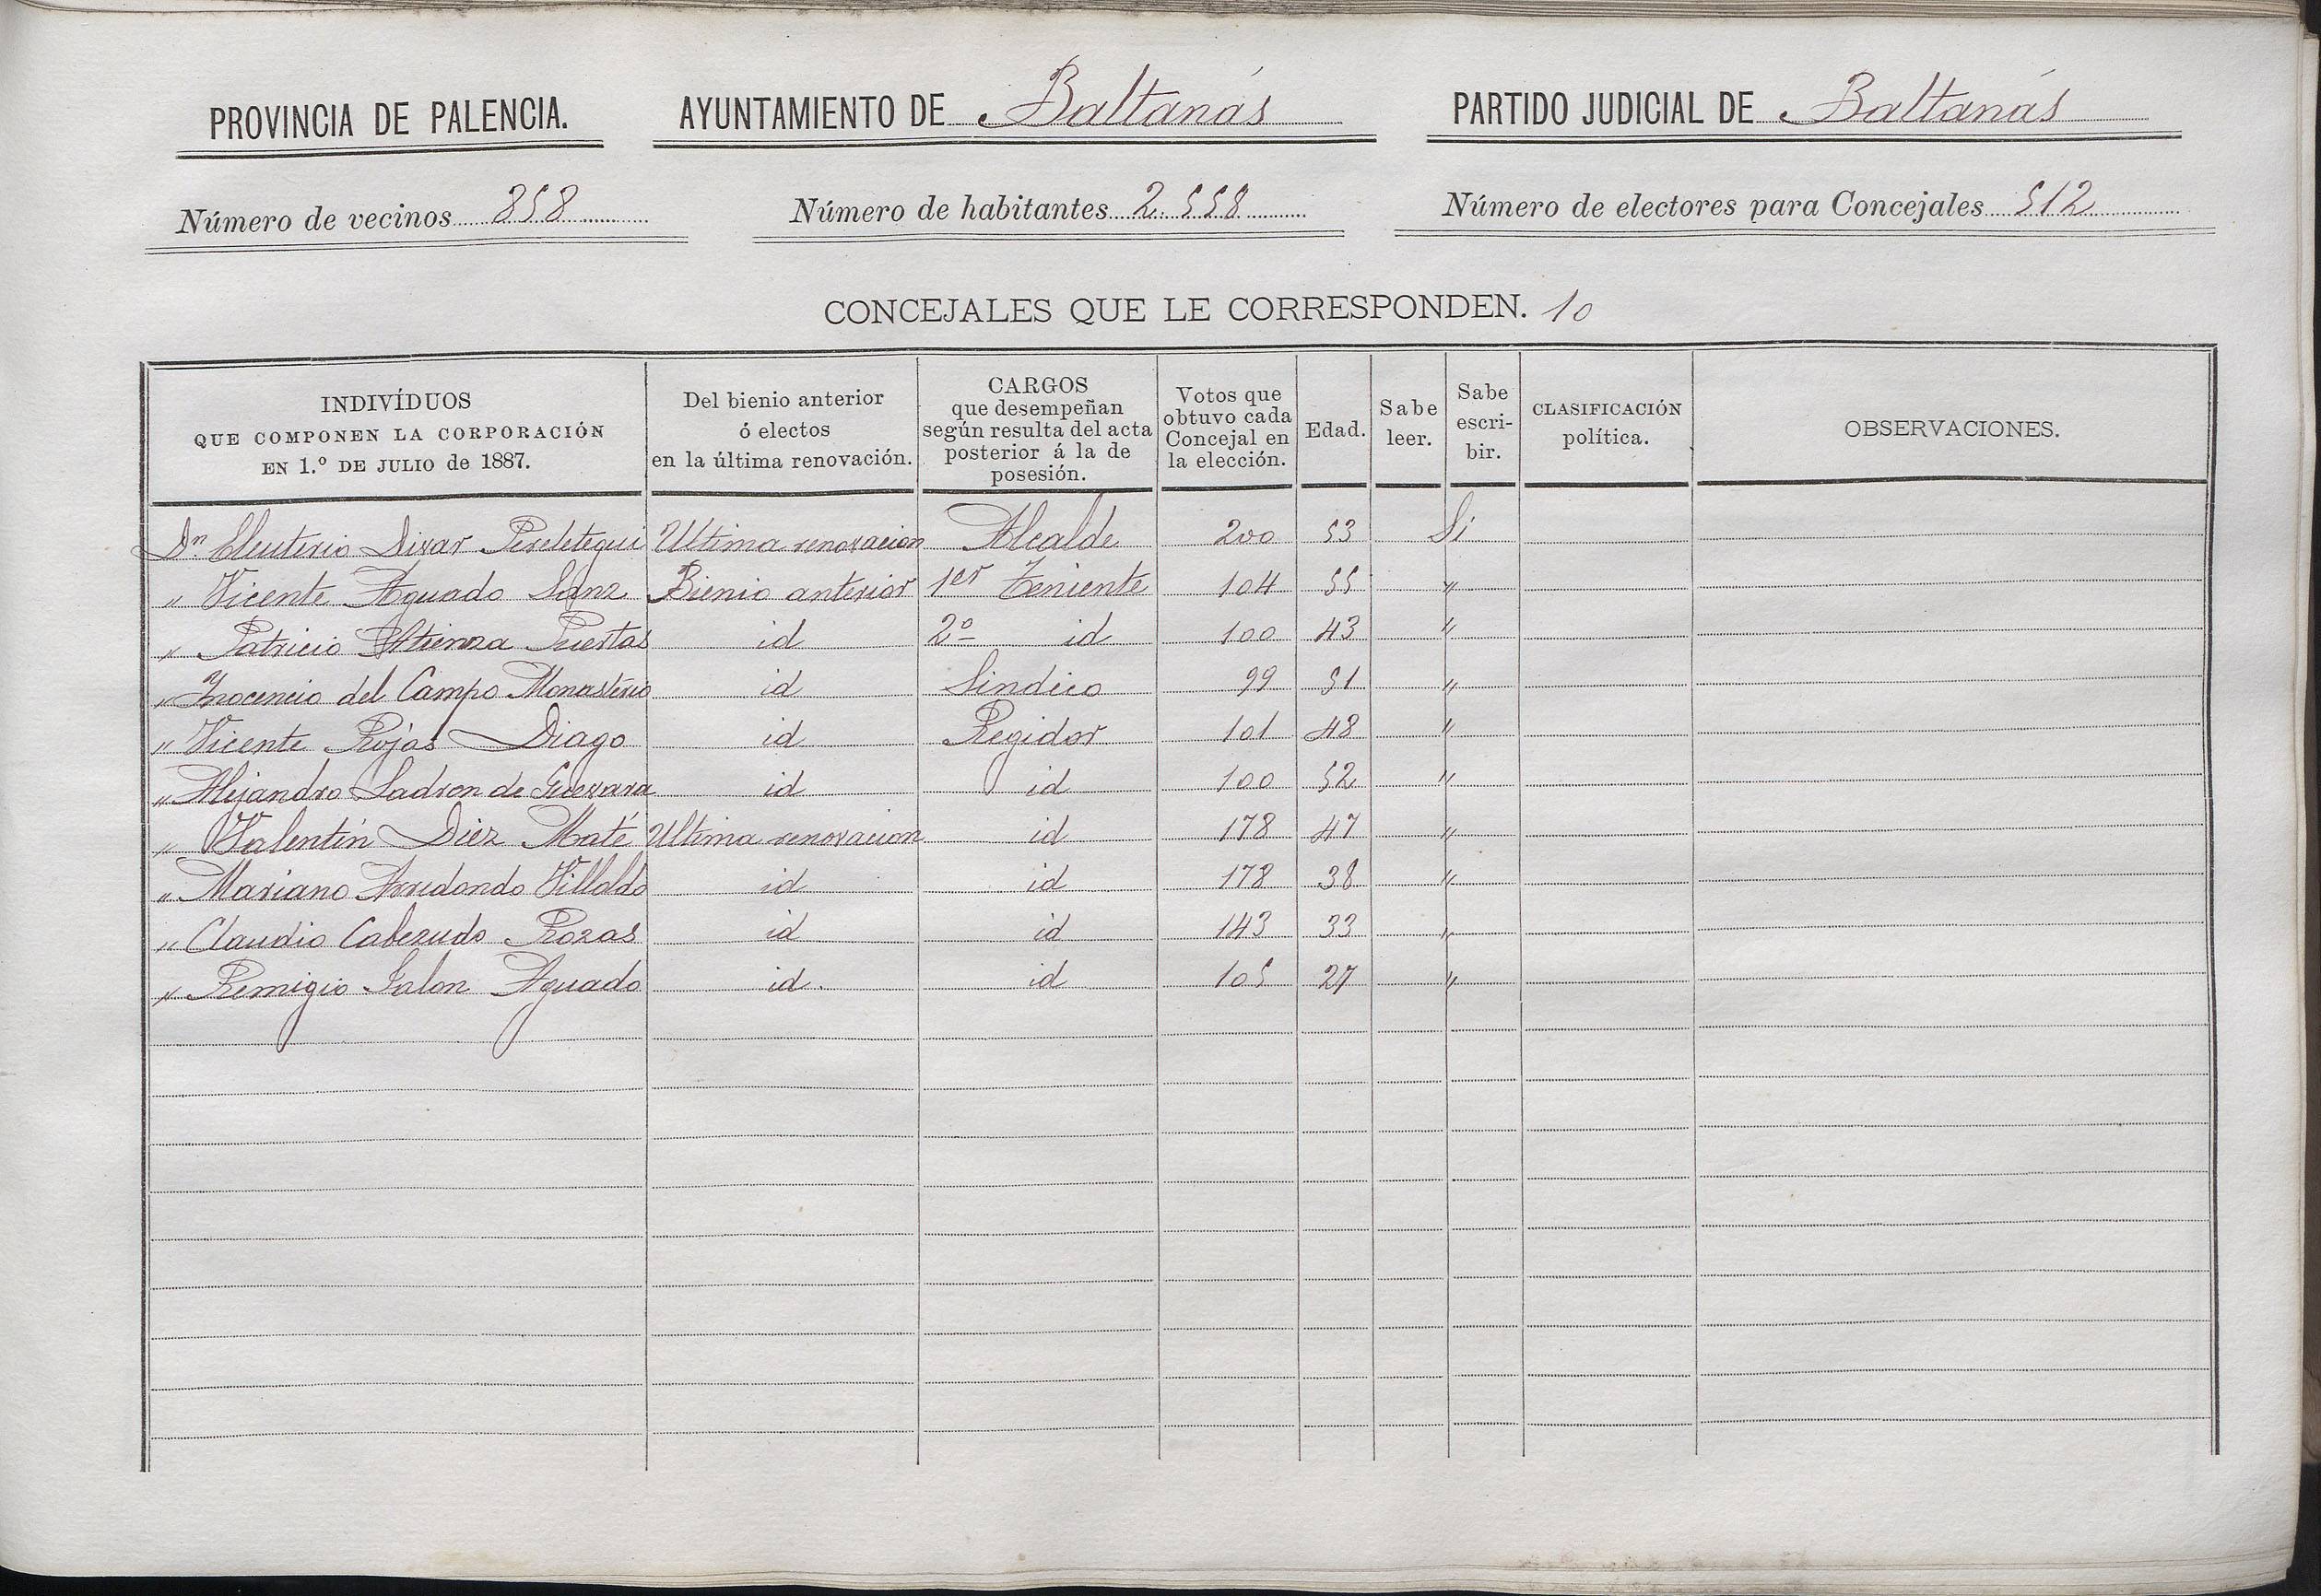 PROVINCIA DE PALENCIA. AYUNTAMIENTO DE Baltanás PARTIDO JUDICIAL DE Baltanás
Número de vecinos 858 Número de habitantes 2.558 Número de electores para Concejales 512
CONCEJALES QUE LE CORRESPONDEN. 10
INDIVÍDUOS
QUE COMPONEN LA CORPORACIÓN
EN 1.º DE JULIO de 1887.
Del bienio anterior
ó electos
en la última renovación.
CARGOS
que desempeñan
según resulta del acta
posterior á la de
posesión.
Votos que
obtuvo cada
Concejal en
la elección.
Edad.
Sabe
leer.
Sabe
escri-
bir.
CLASIFICACIÓN
política.
OBSERVACIONES.
Dn Eleuterio Divar Ultima renovacion Alcalde 200 53 Si
" Vicente Aguado Sanz Bienio anterior 1er Teniente 104 55 "
" Patricio Atienza Puertas id 2º id 100 43 "
" Inocencio del Campo Monasterio id Sindico 99 51 "
" Vicente Rojas Diago id Regidor 101 48 "
" Alejandro Ladron de Guevara id id 100 52 "
" Valentín Diez Maté Ultima renovacion id 178 47 "
" Mariano Arredondo Villaldo id id 178 38 "
" Claudio Cabezudo Rozas id id 143 33 "
" Remigio Salon Aguado id. id 105 27 "